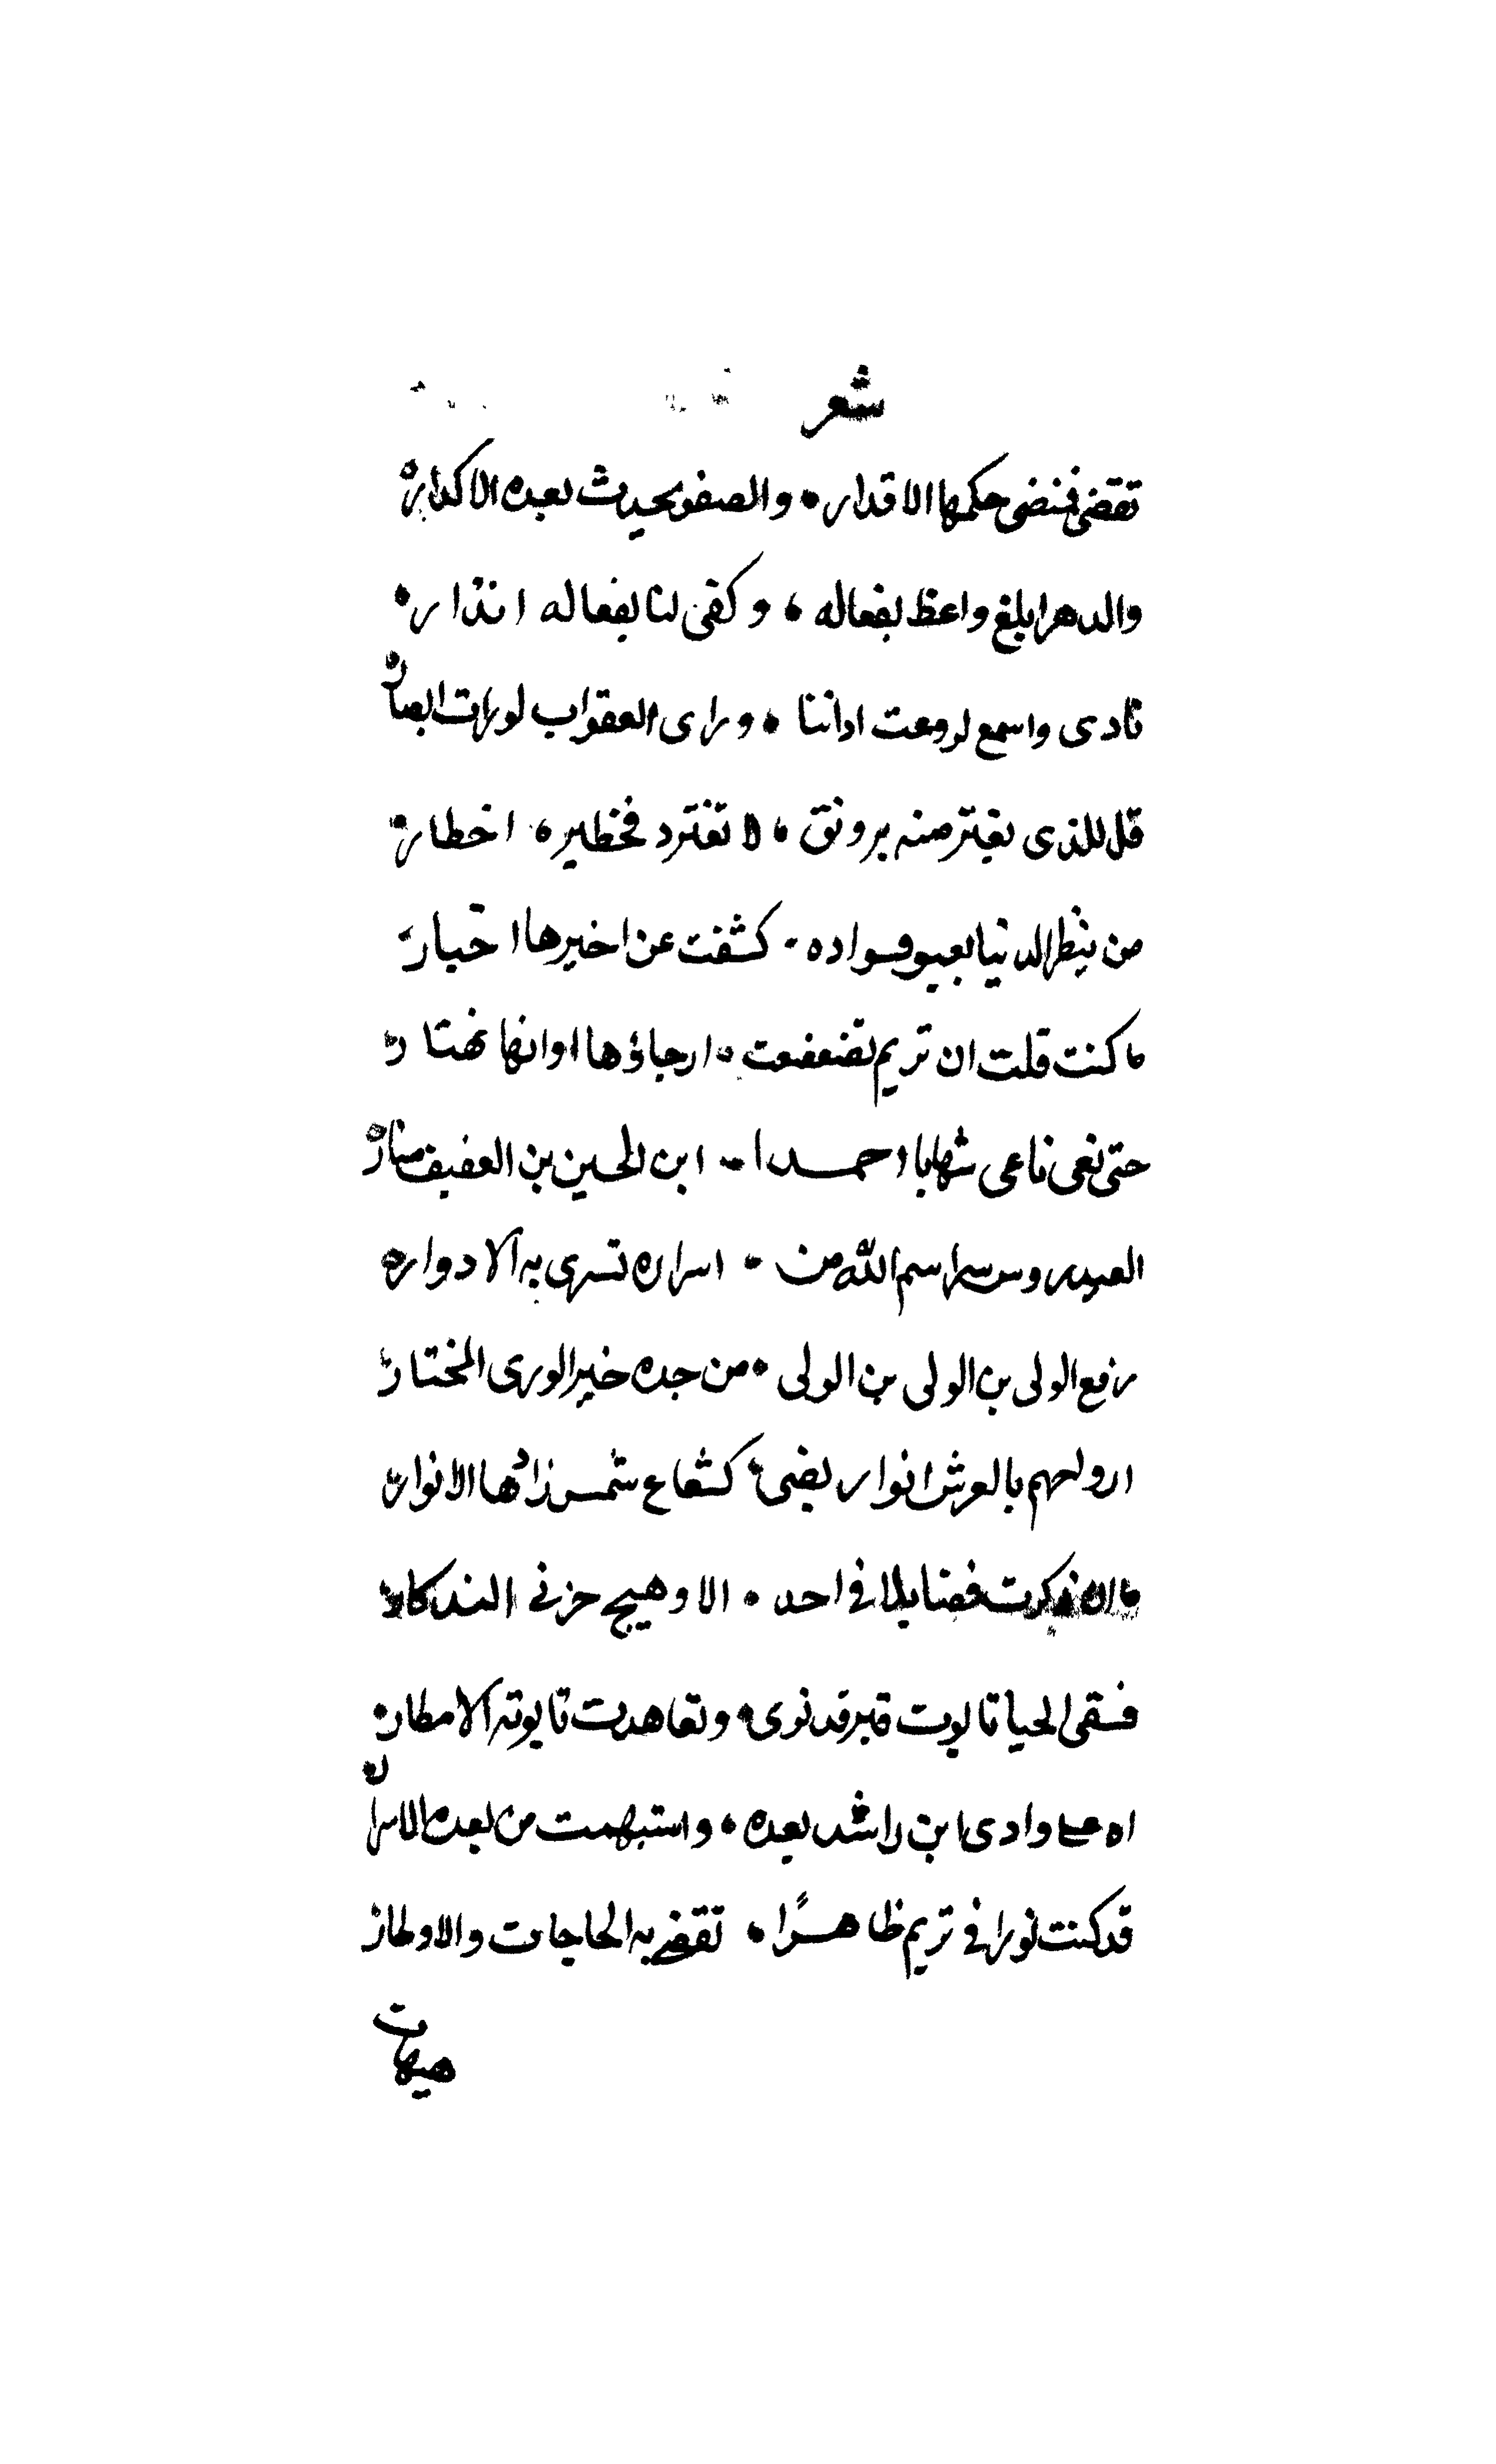 شعر
تقضي فتمضي حكمها الاقدار • والصفو يحدث بعده الاكدار
والدهر ابلغ واعظ بفعاله • وكفى لنا بفعاله انذار
نادى واسمع لو وعت اذاننا • وراى العقواب لو رات ابصار
قل للذي يغتر منه برونق • لا تغترد فخطيره اخطار
من ينظر الدنيا بعين فواده • كشفت عن اخيرها اخبار
ما كنت قلت ان تريم تضعضعت • ارجاؤها اوانها تهتار
حتى نعى ناعي شهابا احمدا • ابن الحسين بن العفيف منار
العيدروس سر اسم الله من • اسراره تسري به الادوار
رفع الولي بن الولي بن الولي • من جده خير الورى المختار
ارولحهم بالعرش انوار يضي • كشعاع شمس زانها الانوار
ما ان ذكرت فضايلا في احد • الا وهيج حزني التذكار
فسقى الحيا تابوت قبر قد نوى • وتعاهدت تابوته الامطار
اه على وادي ابن راشد بعده • واستبهمت من بعده الاسرار
قد كنت نورا في تريم ظاهرًا • تقضي به الحاجات والاوطار
هيهات